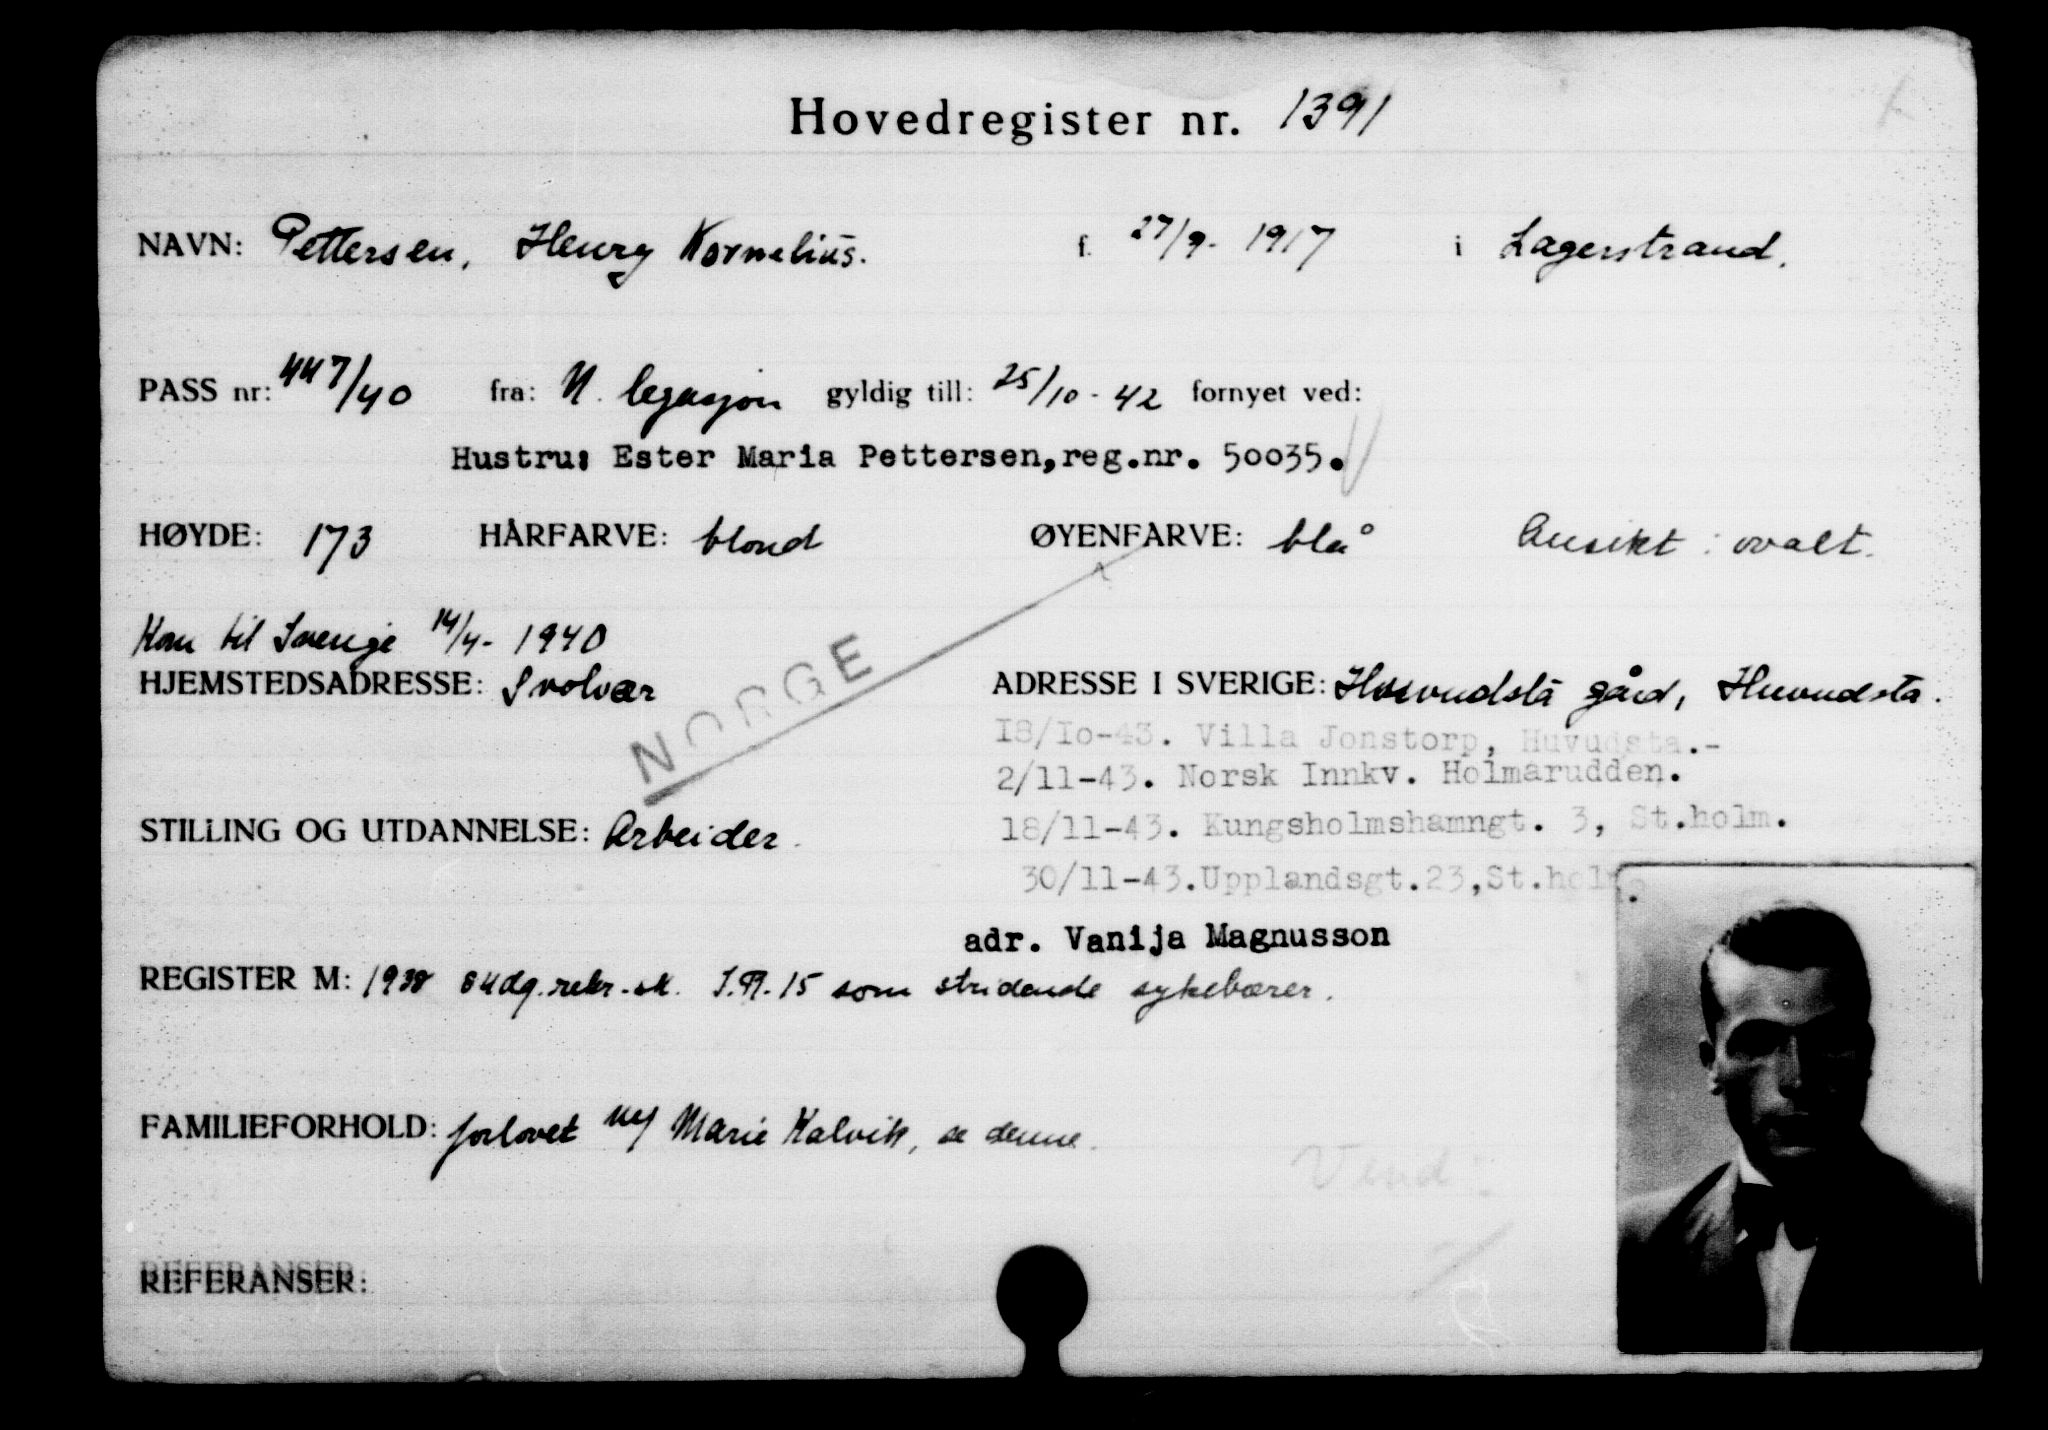 Hovedregister nr. 1391
NAVN: Pettersen, Henry Kornelius. f. 27/9- 1917 i Lagerstrand.
PASS nr: 447/40 fra: N. legasjon gyldig till: 25/10 - 42 fornyet ved:
Hustru: Ester Maria Pettersen, reg.nr. 50035.
HØYDE: 173 HÅRFARVE: blond ØYENFARVE: blå Ansikt: ovalt.
Kom til Sverige 14/4- 1940
HJEMSTEDSADRESSE: Svolvær ADRESSE I SVERIGE: Huvudsta gård, Huvudsta.
NORGE
18/10-43. Villa Jonstorp, Huvudsta.-
2/11-43. Norsk Innkv. Holmarudden.
STILLING OG UTDANNELSE: Arbeider. 18/11-43. Kungsholmshamngt. 3, St.holm.
30/11-43. Upplandsgt. 23, St.holm.
adr. Vanija Magnusson
REGISTER M: 1938 84 dg. rekr. sk. I.R. 15 som stridende sykebærer.
FAMILIEFORHOLD: forlovet m/ Marie Kalvik, se denne.
Vend:
REFERANSER: